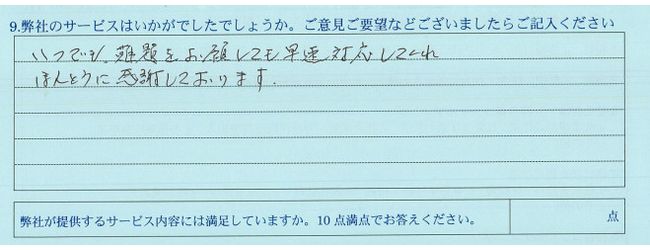 9.弊社のサービスはいかがでしたでしょうか。ご意見ご要望などございましたらご記入ください
いつでも、難題をお願しても早速対応してくれ
ほんとうに感謝しております.
弊社が提供するサービス内容には満足していますか。10点満点でお答えください。
点